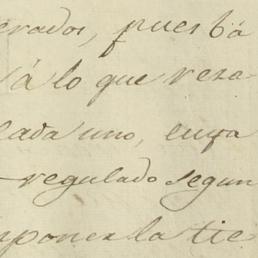 erados, pues bá
á lo que resa
cada uno, cuya
regulado segun
mponer la tie